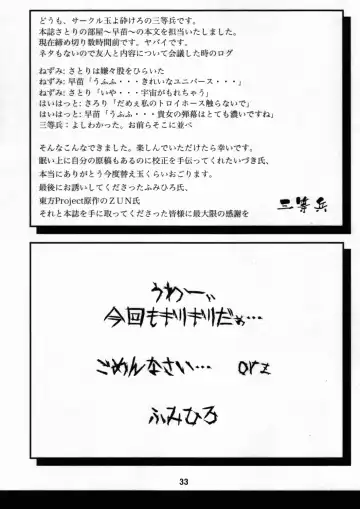 どうも、サークル玉よ砕けろの三等兵です。
本誌さとりの部屋～早苗～の本文を担当いたしました。
現在締め切り数時間前です。ヤバイです。
ネタもないので友人と内容について会議した時のログ
ねずみ：さとりは嫌々股をひらいた
ねずみ：早苗「うふふ・・・きれいなユニバース・・・」
ねずみ：さとり「いや・・・宇宙がもれちゃう」
はいはっと：さろり「だめぇ私のトロイホース触らないで」
はいはっと：早苗「うふふ・・・貴女の弾幕はとても濃いですね」
三等兵：よしわかった。お前らそこに並べ
そんなこんなできました。楽しんでいただけたら幸いです。
眠い上に自分の原稿もあるのに校正を手伝ってくれたいづき氏、
本当にありがとう今度替え玉くらいおごります。
最後にお誘いしてくださったふみひろ氏、
東方Project原作のＺＵＮ氏
それと本誌を手に取ってくださった皆様に最大限の感謝を
三等兵
うわーぃ
今回もギリギリだぁ…
ごめんなさい… orz
ふみひろ
33